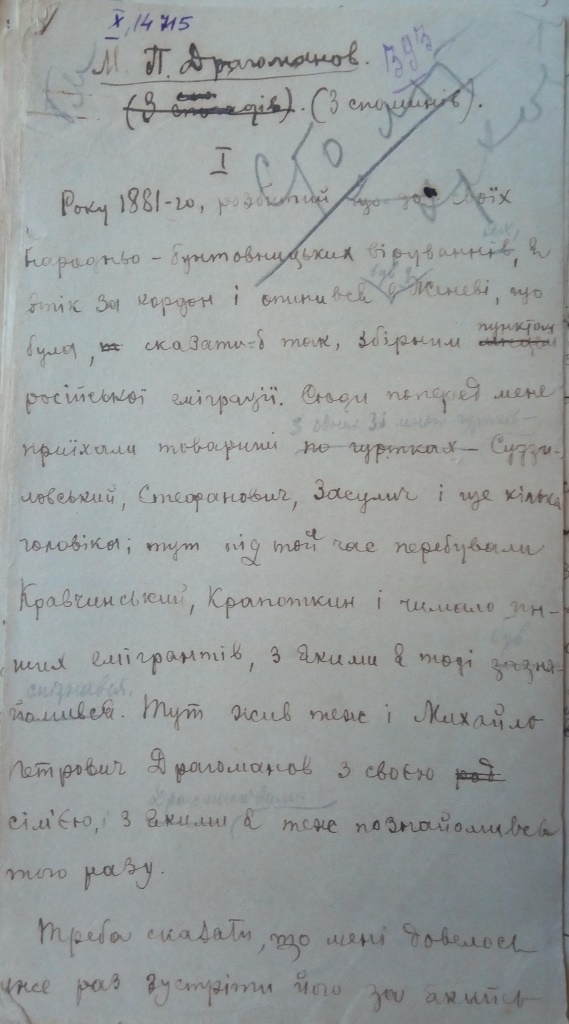 X, 14715
М. П. Драгоманов. 393
(З спогадів). (З споминів).
I
Року 1881-го, розбитий що до моїх
народньо-бунтовницьких віруваннів, я
втік за кордон і опинився в Женеві, що
була, сказати-б так, збірним пунктом
російської еміграції. Сюди поперед мене
приїхали товариші по гуртках – Судзи-
ловський, Стефанович, Засулич і ще кілька
чоловіка; тут під той час перебували
Кравчинський, Крапоткин і чимало ин-
ших емігрантів, з якими я тоді зазна-
спізнався.
йомився. Тут жив теж і Михайло
Петрович Драгоманов з своєю
сім'єю, з якими я теж познайомився
того разу.
Треба сказати, що мені довелось
уже раз зустріти його за якийсь